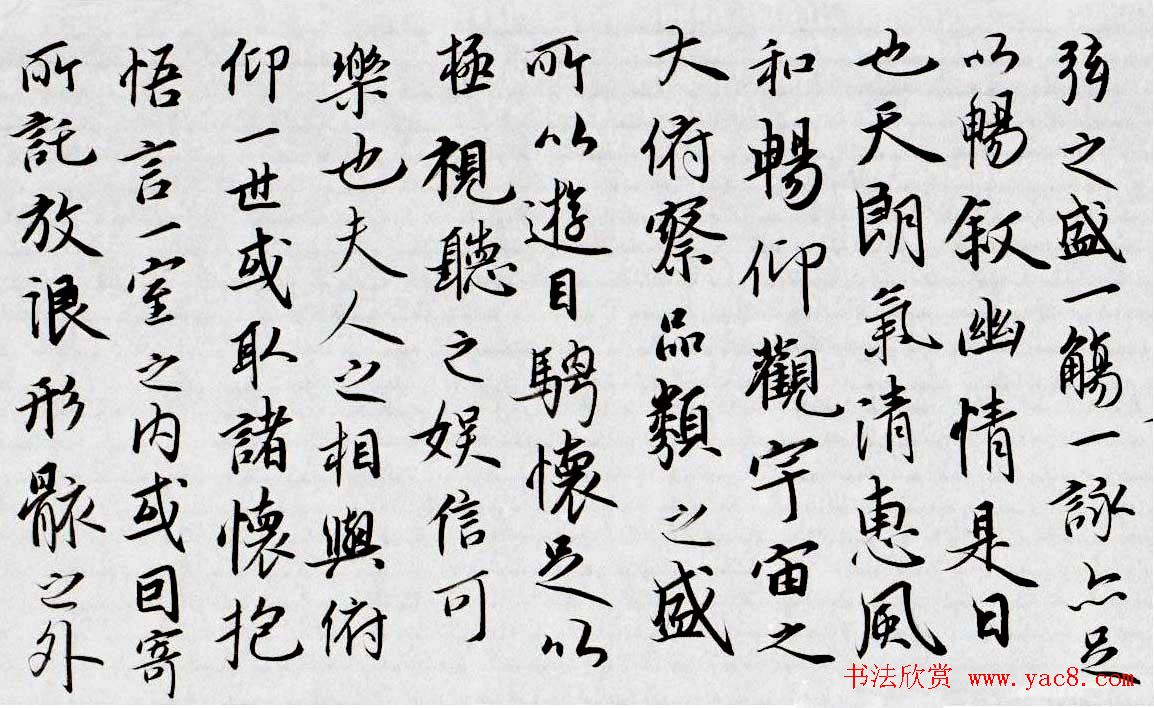 弦之盛一觴一詠亦足
以暢敘幽情是日
也天朗氣清惠風
和暢仰觀宇宙之
大俯察品類之盛
所以遊目騁懷足以
極視聽之娛信可
樂也夫人之相與俯
仰一世或取諸懷抱
悟言一室之內或因寄
所託放浪形骸之外
书法欣赏 www.yac8.com